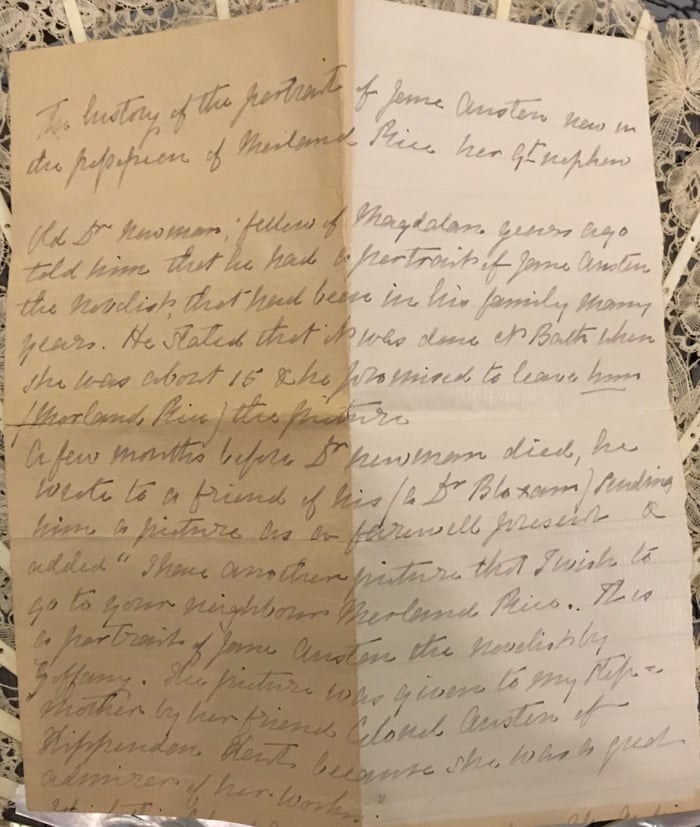 The history of the portrait of Jane Austen now in
the possession of Morland Rice her Gt nephew
Old Dr Newman, fellow of Magdalen years ago
told him that he had a portrait of Jane Austen
the novelist, that had been in his family many
years. He stated that it was done at Bath when
she was about 15 & he promised to leave him
(Morland Rice) the picture
A few months before Dr Newman died, he
wrote to a friend of his (a Dr Bloxam) sending
him a picture as a farewell present &
added "I have another picture that I wish to
go to your neighbour Morland Rice. It is
a portrait of Jane Austen the novelist by
Zoffany. The picture was given to my step-
mother by her friend Colonel Austen of
Kippenden Kent because she was a great
admirer of her works."